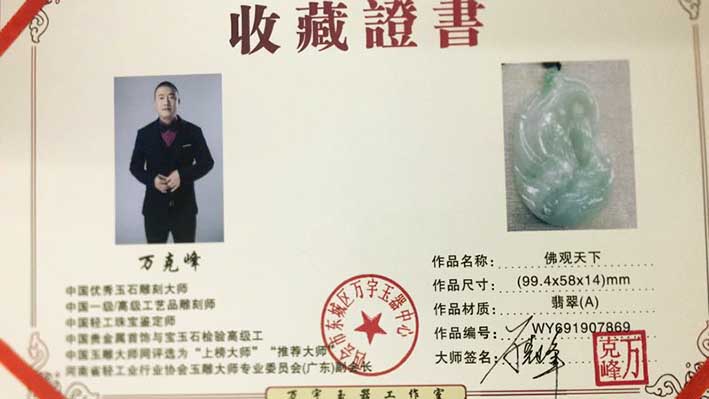 收藏證書
万克峰
中国优秀玉石雕刻大师
中国一级/高级工艺品雕刻师
中国轻工珠宝鉴定师
中国贵金属首饰与宝玉石检验高级工
中国玉雕大师网评选为“上榜大师”“推荐大师”
河南省轻工业行业协会玉雕大师专业委员会(广东)副会长
四会市东城区万宇玉器中心
作品名称: 佛观天下
作品尺寸: (99.4x58x14)mm
作品材质: 翡翠(A)
作品编号: WY691907869
大师签名: 万克峰
万克峰
万宇玉器工作室